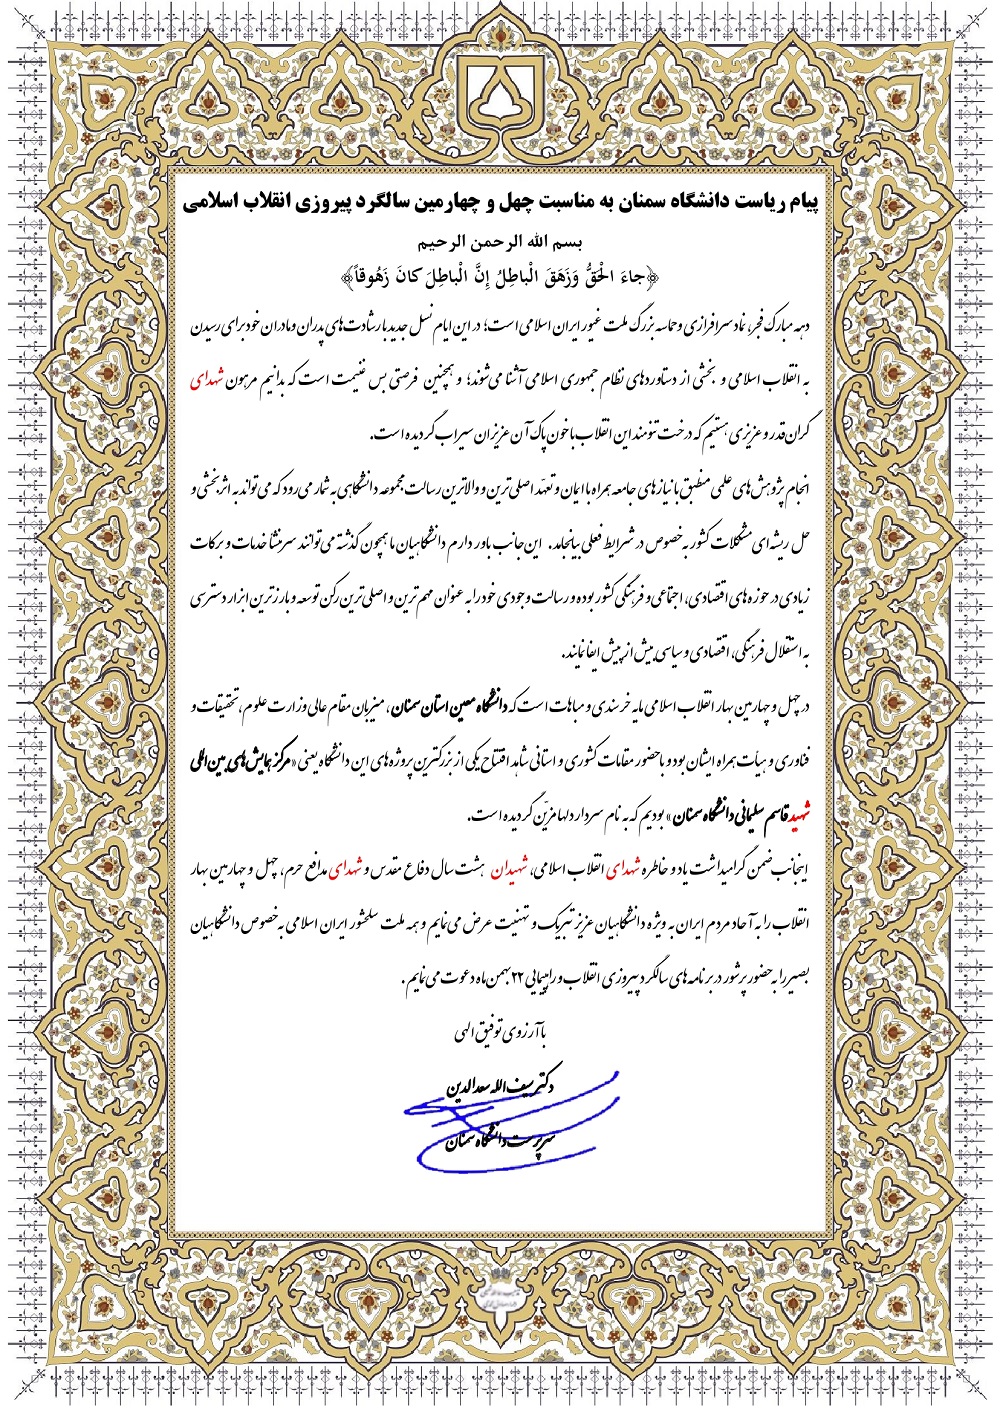 پیام ریاست دانشگاه سمنان به مناسبت چهل و چهارمین سالگرد پیروزی انقلاب اسلامی
بسم الله الرحمن الرحیم
﴿جاءَ الْحَقُّ وَزَهَقَ الْباطِلُ إِنَّ الْباطِلَ کانَ زَهُوقاً﴾
دهه مبارک فجر، نماد سرافرازی و حماسه بزرگ ملت غیور ایران اسلامی است؛ در این ایام نسل جدید با رشادت‌های پدران و مادران خود برای رسیدن
به انقلاب اسلامی و بخشی از دستاوردهای نظام جمهوری اسلامی آشنا می‌شوند؛ و همچنین فرصتی بس غنیمت است که بدانیم مرهون شهدای
گران‌قدر و عزیزی هستیم که درخت تنومند این انقلاب با خون پاک آن عزیزان سیراب گردیده است.
انجام پژوهش‌های علمی منطبق با نیازهای جامعه همراه با ایمان و تعهّد اصلی‌ترین و والاترین رسالت مجموعه دانشگاهی به شمار می‌رود که می‌تواند به اثربخشی و
حل ریشه‌ای مشکلات کشور به خصوص در شرایط فعلی بیانجامد. این‌جانب باور دارم دانشگاهیان ما همچون گذشته می‌توانند سرمنشأ خدمات و برکات
زیادی در حوزه‌های اقتصادی، اجتماعی و فرهنگی کشور بوده و رسالت وجودی خود را به عنوان مهم‌ترین و اصلی‌ترین رکن توسعه و بارزترین ابزار دسترسی
به استقلال فرهنگی، اقتصادی و سیاسی بیش از پیش ایفا نمایند.
در چهل و چهارمین بهار انقلاب اسلامی مایه خرسندی و مباهات است که دانشگاه معین استان سمنان، میزبان مقام عالی وزارت علوم، تحقیقات و
فناوری و هیأت همراه ایشان بود و با حضور مقامات کشوری و استانی شاهد افتتاح یکی از بزرگترین پروژه‌های این دانشگاه یعنی «مرکز همایش‌های بین‌المللی
شهید قاسم سلیمانی دانشگاه سمنان» بودیم که به نام سردار دلها مزیّن گردیده است.
اینجانب ضمن گرامیداشت یاد و خاطره شهدای انقلاب اسلامی، شهیدان هشت سال دفاع مقدس و شهدای مدافع حرم، چهل و چهارمین بهار
انقلاب را به آحاد مردم ایران به ویژه دانشگاهیان عزیز تبریک و تهنیت عرض می‌نمایم و همه ملت سلحشور ایران اسلامی به خصوص دانشگاهیان
بصیر را به حضور پرشور در برنامه‌های سالگرد پیروزی انقلاب و راهپیمایی ۲۲ بهمن ماه دعوت می‌نمایم.
با آرزوی توفیق الهی
دکتر سیف الله سعدالدین
سرپرست دانشگاه سمنان